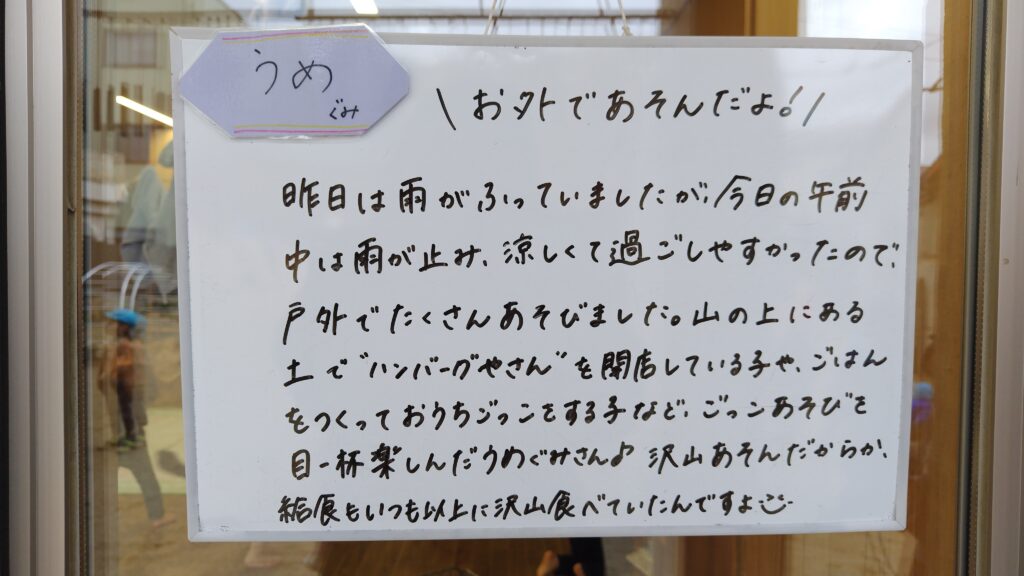 うめ
ぐみ
\お外であそんだよ!/
昨日は雨がふっていましたが、今日の午前
中は雨が止み、涼しくて過ごしやすかったので、
戸外でたくさんあそびました。山の上にある
土で"ハンバーグやさん"を開店している子や、ごはん
をつくっておうちごっこをする子など、ごっこあそびを
目一杯楽しんだうめぐみさん♪ 沢山あそんだからか、
給食もいつも以上に沢山食べていたんですよ